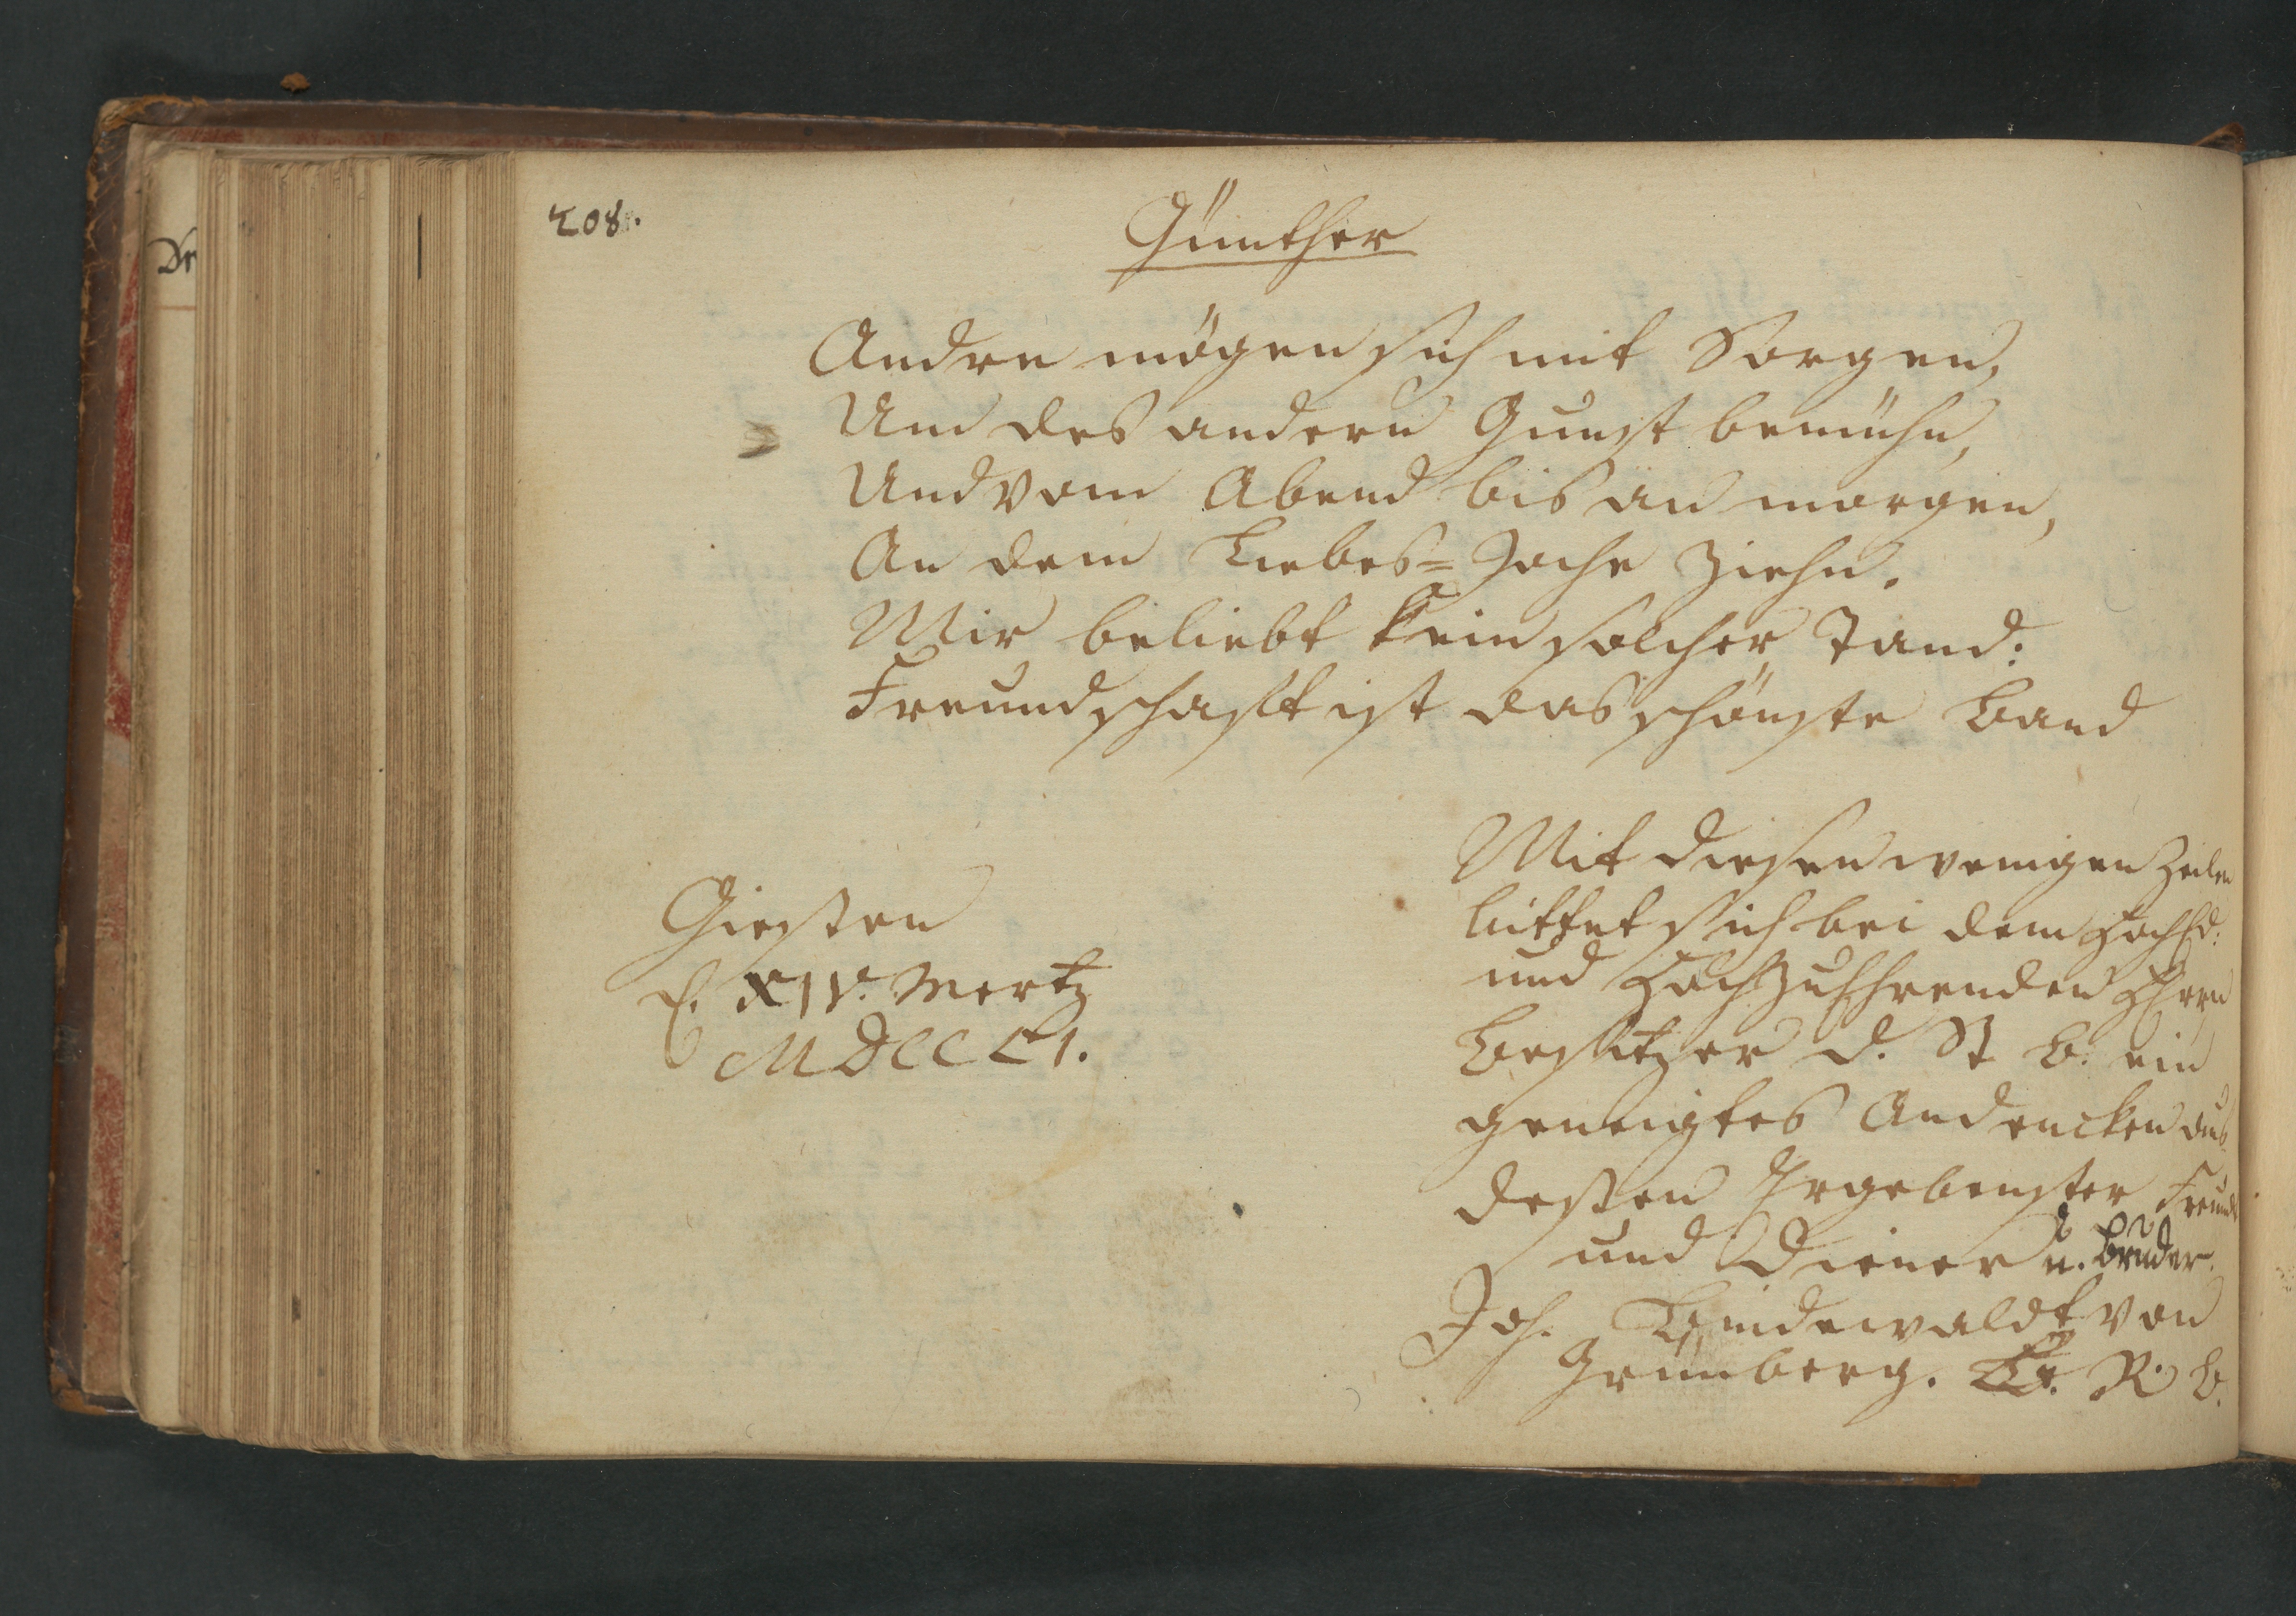 208.
Günther
Andre mögen sich mit Sorgen,
Um des andern Gunst bemühn,
Und vom Abend bis an morgen,
An dem Liebes=Joche Ziehn.
Mir beliebt kein solcher Tand:
Freundschafft ist das schönste Band
Giessen
d. XIV. Mertz
MDCCLI.
Mit diesen wenigen Zeilen
bittet sich bei dem HochEd:
und HochzuEhrenden Herrn
Besitzer d. St B. ein
geneigtes Andencken aus
dessen Ergebenster Freund
und Diener u. Bruder.
Joh. von
Grünberg. R. b.
De